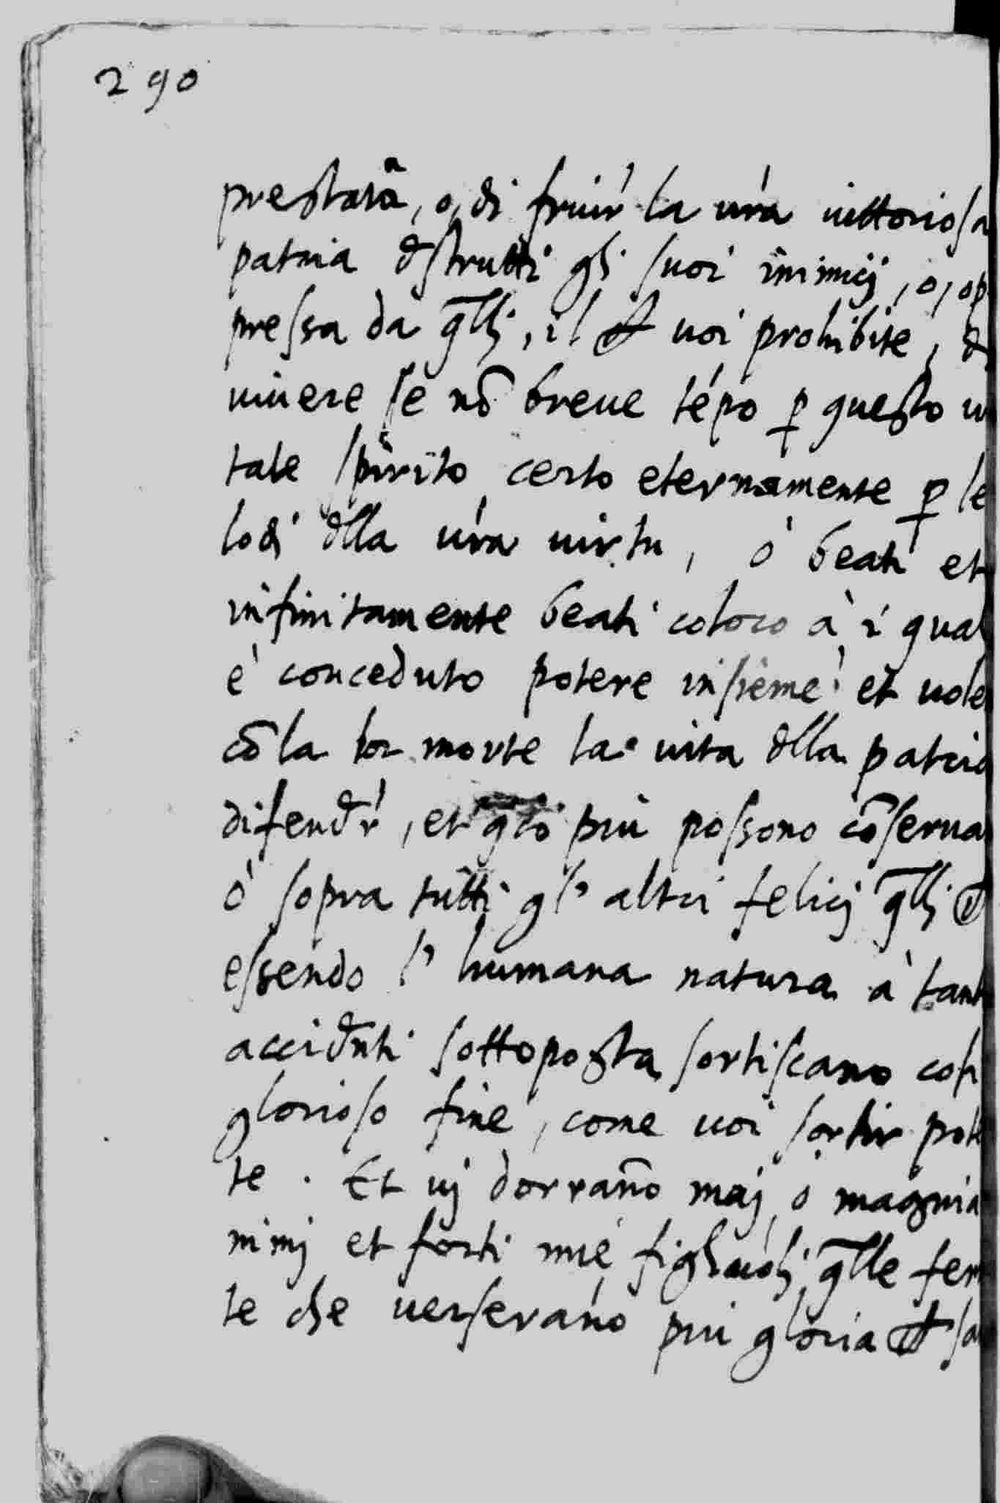 290
prestatã, o, di fruir la vr̃a vittoriosa
patria dstrutti gli suoi inimicij, o, op
pressa da q̃lli, il ch voi prohibite, d
vivere se nõ breve tẽpo p questo vi
tale spirito certo eternamente p le
lodi dlla vr̃a virtu, ò beati et
infinitamente beati coloro à i qual
è conceduto potere insieme et vole
cõ la lor morte la vita dlla patria
difendr, et q̃to piu possono cõserva
ò sopra tutti gl' altri felicij q̃lli ch
essendo l' humana natura à tant
accidnti sottoposta sortiscano cosi
glorioso fine, come voi sortir pote
te. Et vi dorrãno maj, o magnia
nimj et forti miei figliuolj q̃lle feri
te che verserãno piu gloria ch sa